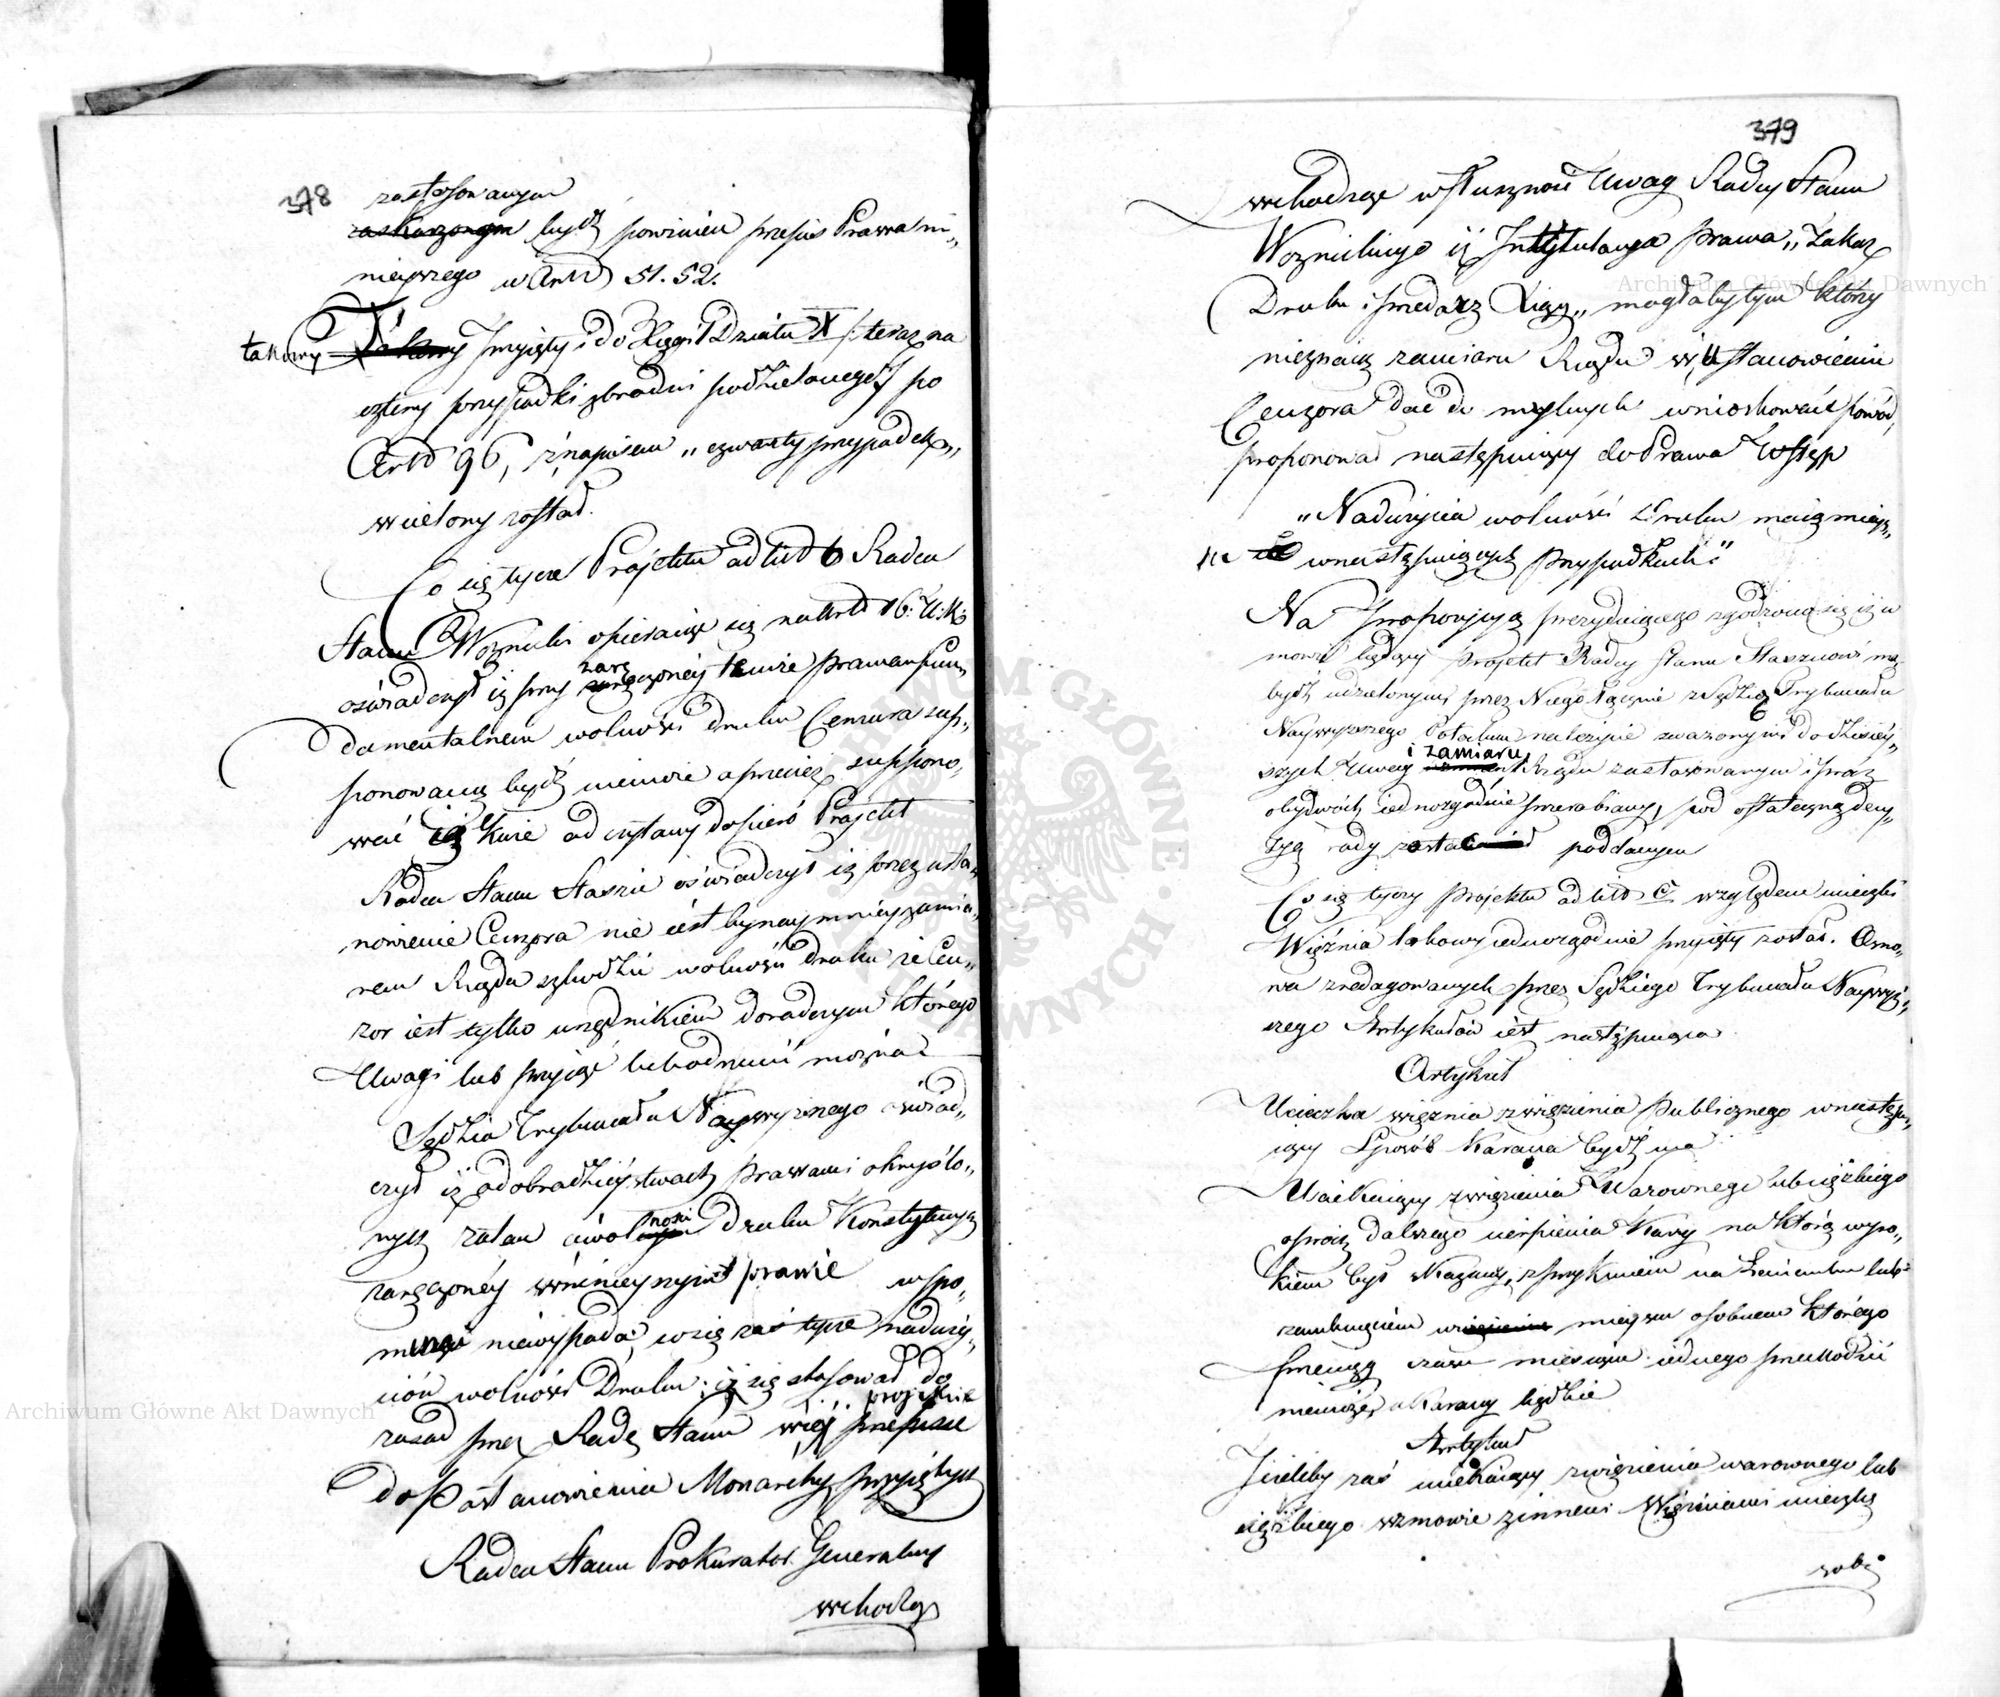 378
zastosowanym
zaskarzonym bydź powinien przepis Prawa ni„
nieyszego w Artd 51. 52.
takowy Takowy Przyięty i do Xięgi I Działu X /: teraz na
cztery przypadki zbrodni podzielonego :/ po
Artd 96, z napisem „czwarty przypadek„
wcielony został.
Co się tycze Projektu ad litt b Radca
Stanu Woznicki opieraiąc się na Artd 16. U. K:
oświadczył iż przy zaręczoney temże prawem fun„
damentalnem wolności druku Cenzura sup„
ponowaną bydź niemoże a przecież suppono„
wać iż każe odczytany dopiero Projekt
Radca Stanu Staszic oświadczył iż przez usta„
nowienie Cenzora nie iest bynaymniey zamia„
rem Rządu szkodzić wolności druku że Cen„
zor iest tylko urzędnikiem doradczym którego
Uwagi lub przyiąć lub odrzucić można
Sędzia Trybunału Naywyższego oświad„
czył iż o dobrodzieystwach prawami okryślo„
nych zatem o wolności druku Konstytucyą
zaręczoney w ninieyszym prawie wspo„
minać niewypada, co się zaś tycze naduży„
ciów wolności Druku, iż się stosował do
zasad przez Radę Stanu w iey projekcie przepisie
do Postanowienia Monarchy przyiętych
Radca Stanu Prokurator Generalny
wchodząc
379
wchodząc w słuszność Uwag Radcy Stanu
Woznickiego iż Intytulacya prawa „Zakaz
Druku i przedarz Xiąg„ mogłaby tym którzy
nieznaią zamiaru Rządu w ustanowieniu
Cenzora dać do mylnych wnioskowań powód,
proponował następuiący do Prawa Wstęp
„Nadużycia wolności druku maią miey„
sce w następuiących przypadkach:"
Na Propozycyą prezyduiącego zgodzono się iż w
mowie będący projekt Radcy Stanu Staszicowi ma
bydź udzielonym, przez Niego łącznie z Sędzią Trybunału
Naywyższego Potockim należycie zważonym do dzisiey„
szych Uwag i zamiaru Rządu zastosowanym i przez
obydwóch iednozgodnie przerabiany, pod ostateczną decy„
zyą rady zostać poddanym
Co się tyczy projektu ad litt c względem ucieczki
Więźnia takowy iednozgodnie przyięty został. Osno„
wa zredagowanych przez Sędziego Trybunału Naywyż„
szego Artykułów iest następuiąca
Artykuł
Ucieczka więznia z więzienia publicznego w następu„
iący sposób karana bydź ma
Uciekaiący z więzienia Warownego lub ciężkiego
oprócz dalszego cierpienia kary na którą wyro„
kiem był skazany, z przykuciem na łańcuchu lub
zamknięciem w więzieniu mieyscu osobnem którego
przeciąg czasu miesiąca iednego przechodzić
niemoże, ukarany będzie
Artykuł
Jeżeliby zaś uciekaiący z więzienia warownego lub
ciężkiego wzmowie z innemi Więźniami ucieczkę
robi
Archiwum Główne Akt Dawnych
Archiwum Główne Akt Dawnych
ARCHIWUM GŁÓWNE AKT DAWNYCH